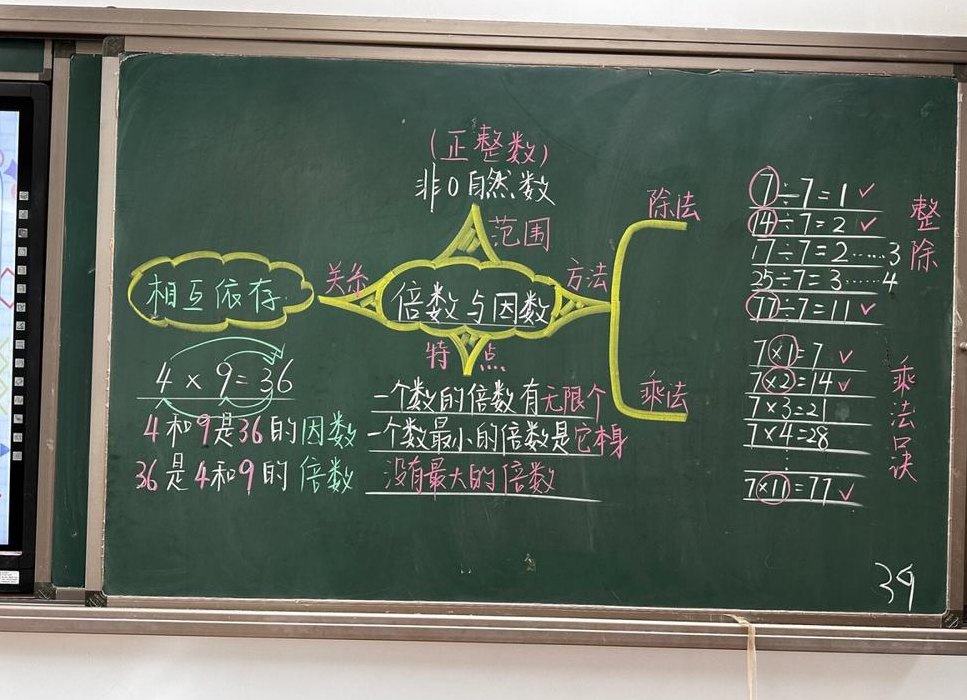 (正整数)
非0自然数
范围
关系
相互依存
倍数与因数
方法
特点
4×9=36
4和9是36的因数
36是4和9的倍数
一个数的倍数有无限个
一个数最小的倍数是它本身
没有最大的倍数
除法
7÷7=1 ✓
14÷7=2 ✓
17÷7=2……3
25÷7=3……4
77÷7=11 ✓
整除
乘法
7×1=7 ✓
7×2=14 ✓
7×3=21
7×4=28
⋮
7×11=77 ✓
乘法口诀
39